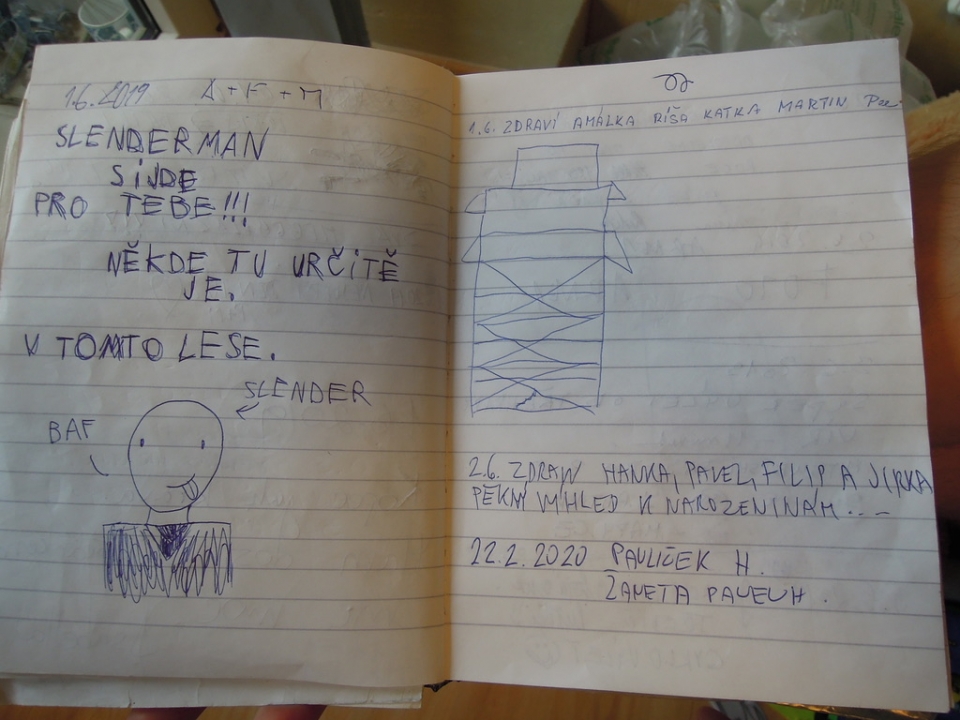 1.6.2019 A + F + M
SLENDERMAN
SiJDE
PRO TEBE!!!
NĚKDE TU URČITĚ
JE.
V TOMTO LESE.
SLENDER
BAF
1.6. ZDRAVÍ AMÁLKA RÍŠA KATKA MARTIN
2.6. ZDRAVÍ HANKA, PAVEL, FILIP A JIRKA
PĚKNÝ VÝHLED K NAROZENINÁM...
22.2.2020 PAVLÍČEK H.
ŽANETA